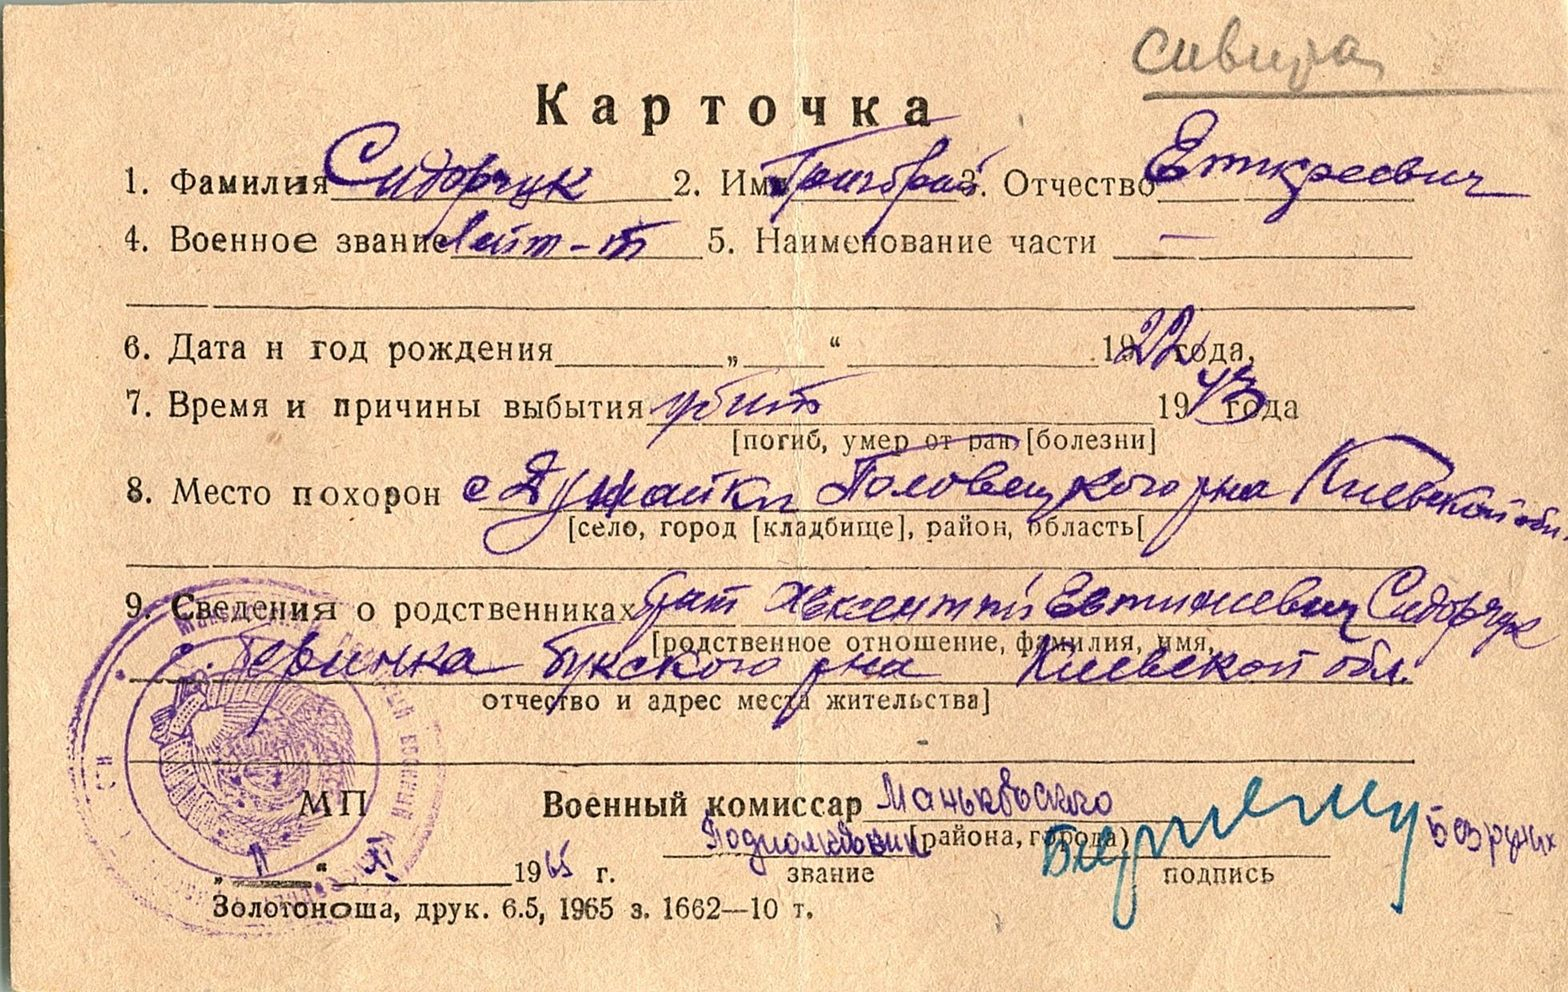 Карточка
1. Фамилия Сидорчук 2. Имя Григорий 3. Отчество
4. Военное звание Лейт-т 5. Наименование части —
6. Дата и год рождения „ “ 1922 года,
7. Время и причины выбытия убит 1943 года
[погиб, умер от ран, [болезни]
8. Место похорон с Половецкого р-на Киевской обл.
[село, город [кладбище], район, область[
9. Сведения о родственниках брат Сидорчук
[родственное отношение, фамилия, имя,
с. Букского р-на Киевской обл.
отчество и адрес места жительства]
МП Военный комиссар Маньковского
Подполковник [района, города)
„ “ XI 1965 г. звание подпись Безруких
Золотоноша, друк. 6.5, 1965 з. 1662—10 т.